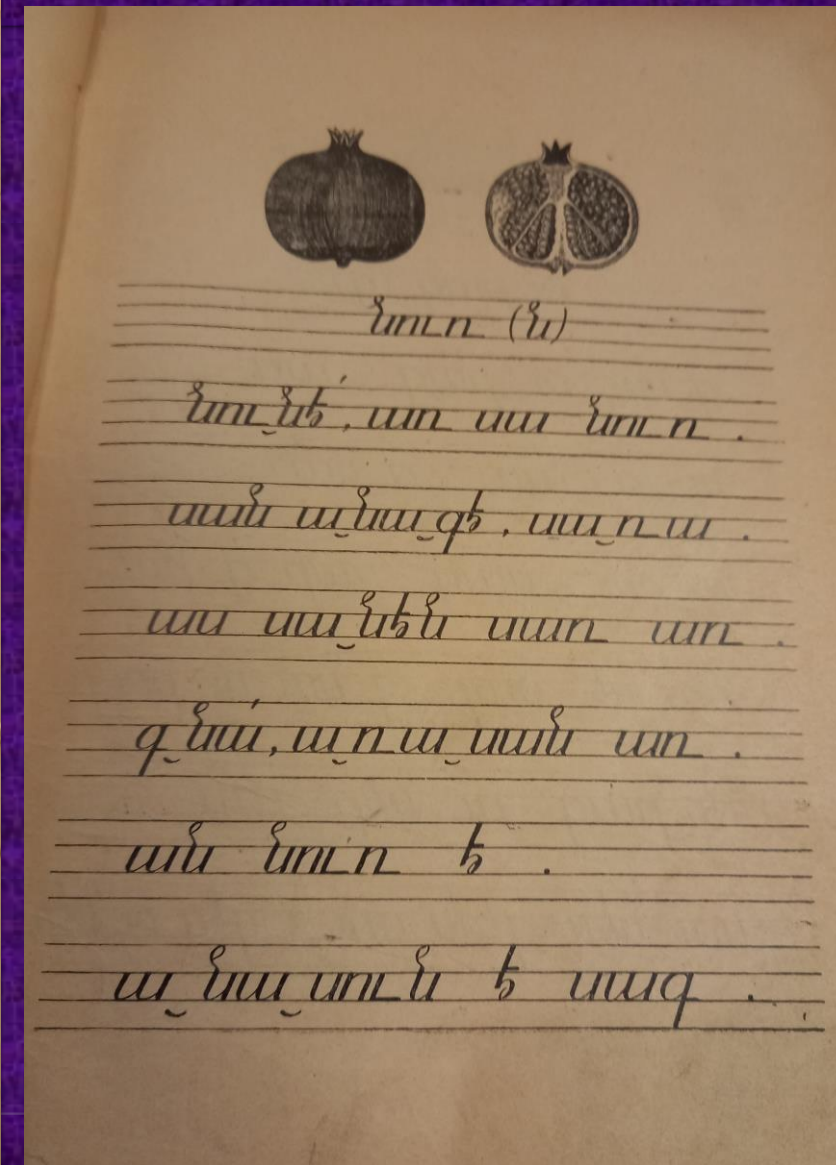 նուռ (ն)
նու‿նէ՛, առ սա նուռ .
սան ա‿նա‿գէ, սա‿ռա .
աս սա‿նէն սառ առ .
գ‿նա՛, ա‿ռա‿սան առ .
ան նուռ է .
ա‿նա‿սուն է սագ .